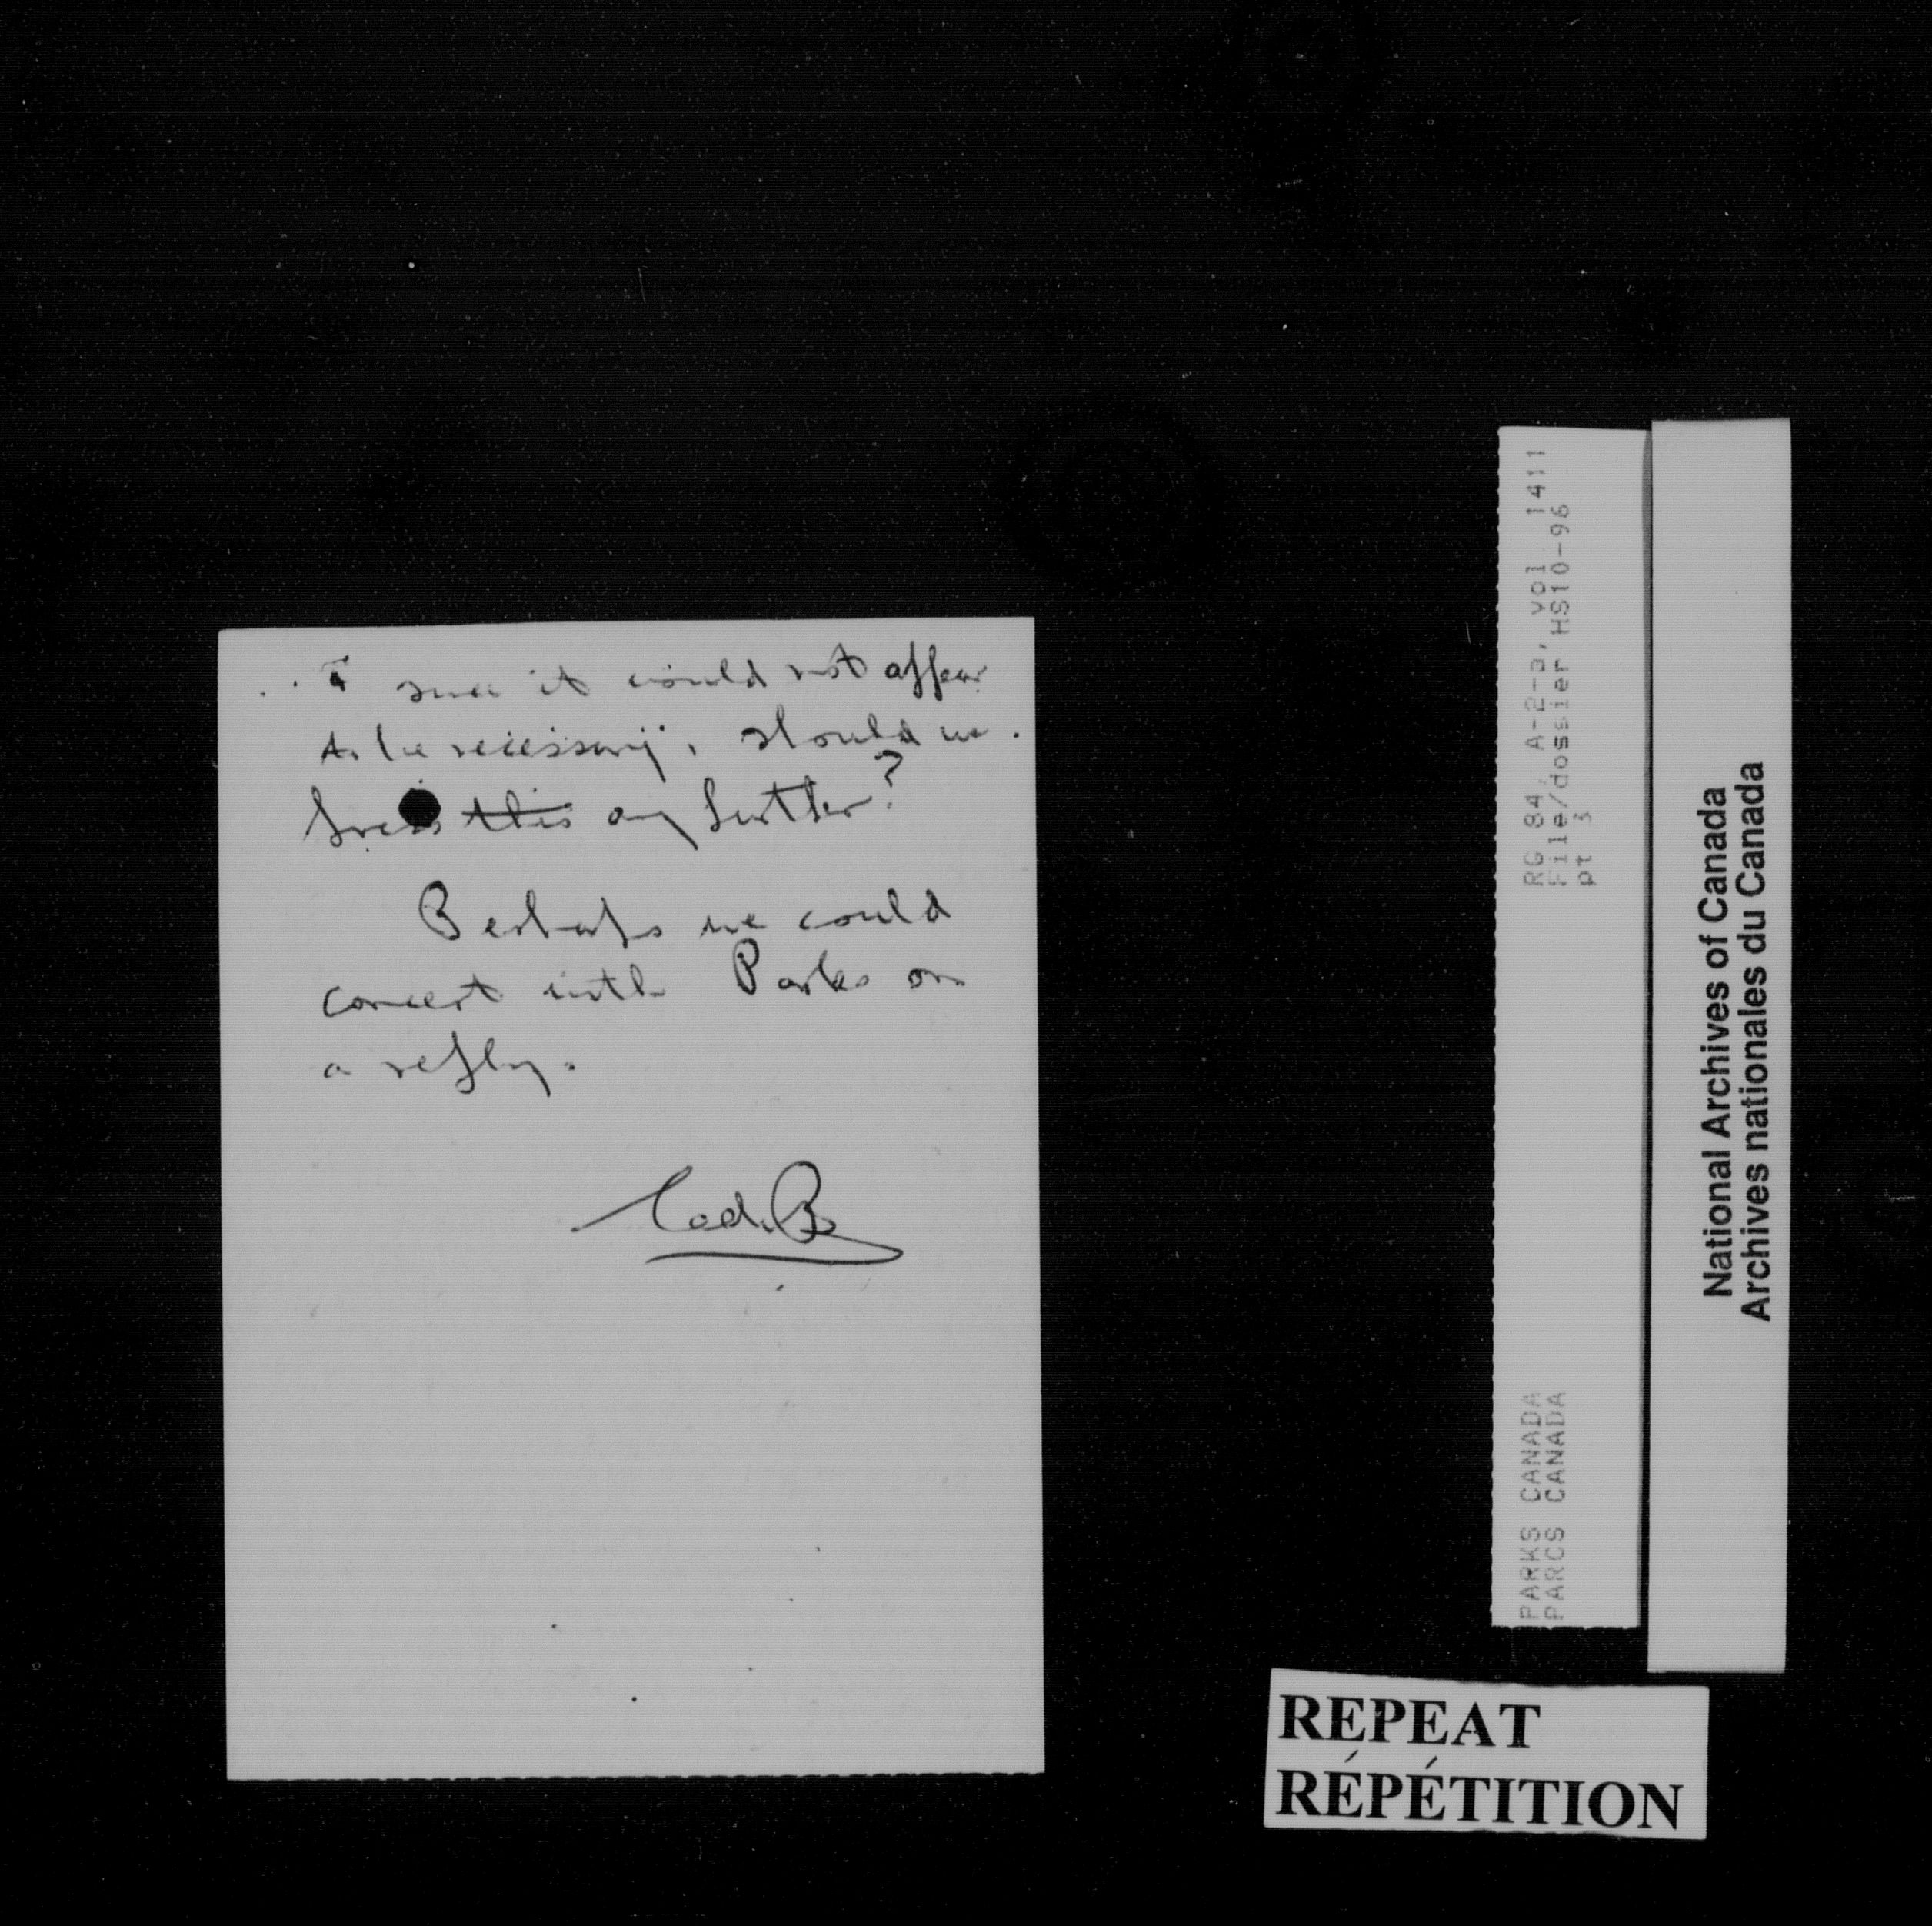 since it would not appear
to be necessary, should we
press this any further?
Perhaps we could
concert with Parks on
a reply.
RG 84, A-2-a, vol 1411
File/dossier HS10-96
pt 3
PARKS CANADA
PARCS CANADA
National Archives of Canada
Archives nationales du Canada
REPEAT
RÉPÉTITION